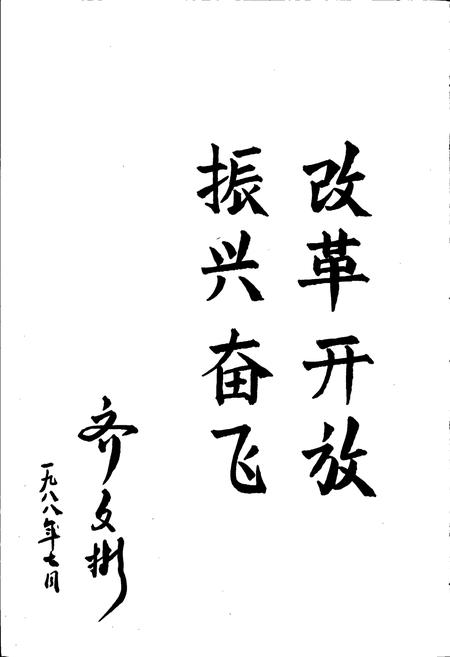 改革开放
振兴奋飞
齐文彬
一九八八年七月